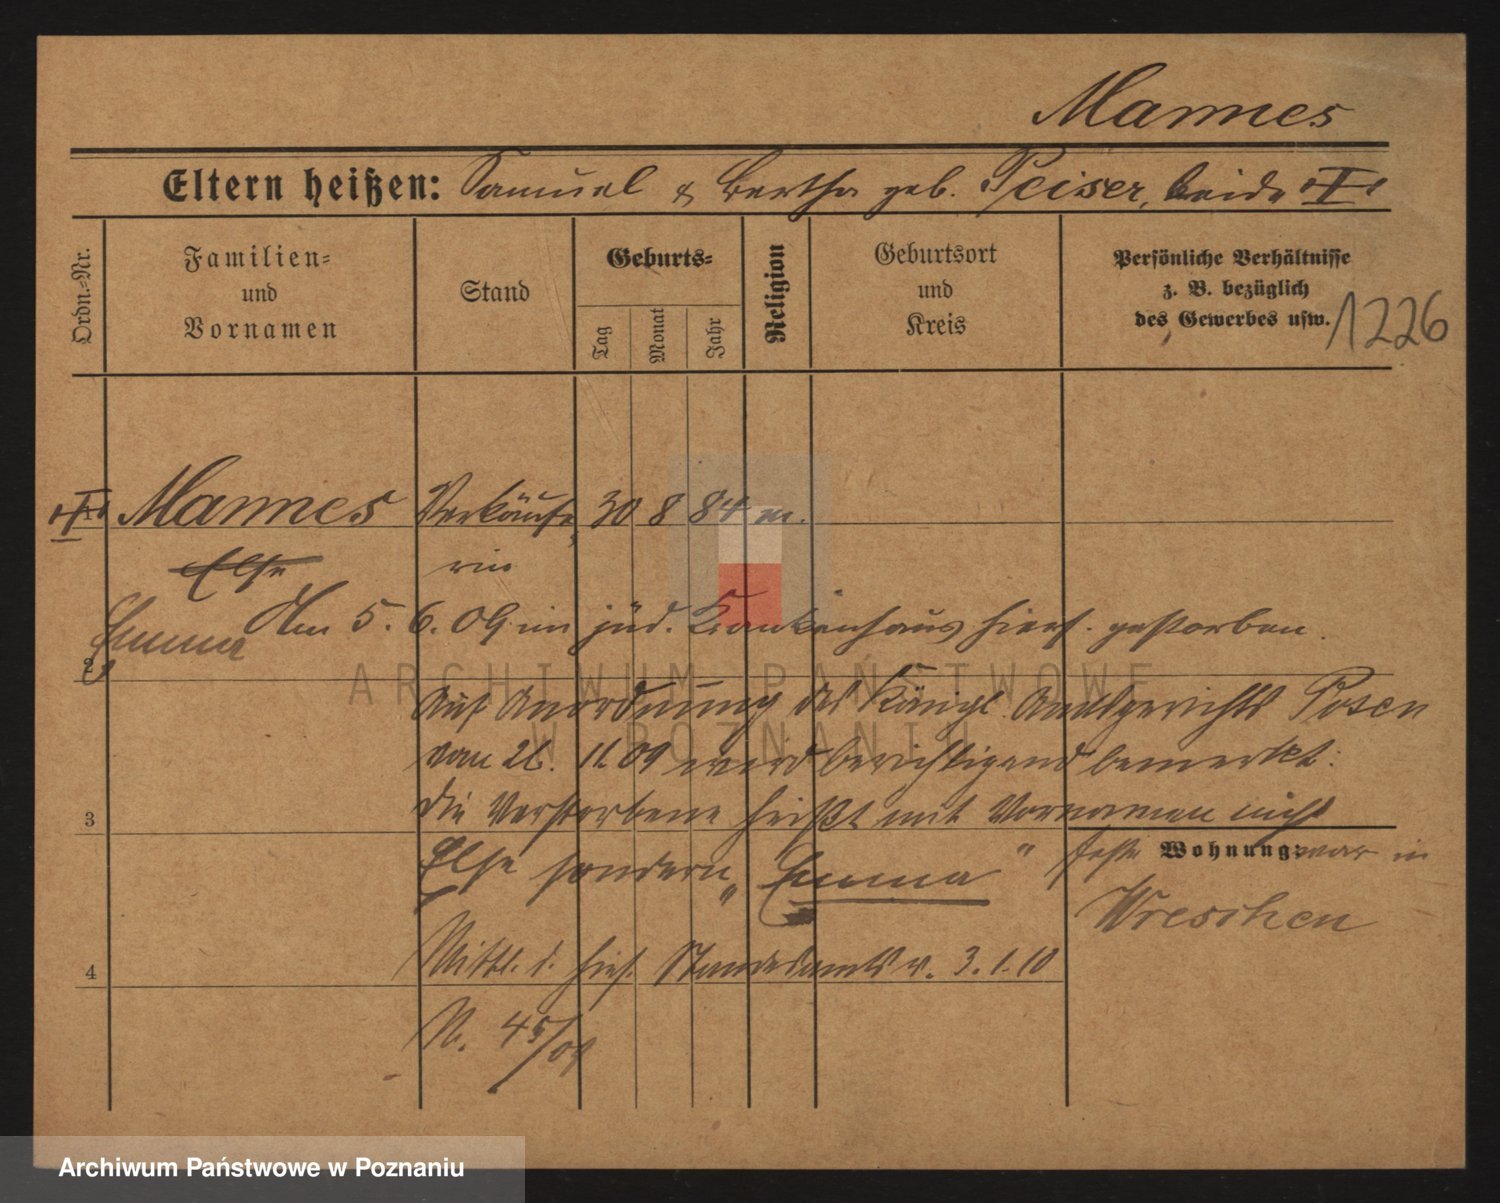 Mannes
Eltern heißen: Samuel & Bertha geb. Peiser, beide
Ordn.-Nr.
Familien-
und
Vornamen
Stand
Geburts-
Tag
Monat
Jahr
Religion
Geburtsort
und
Kreis
Persönliche Verhältnisse
z. B. bezüglich
des Gewerbes usw.
1226
1 Mannes Verkäufe- 30 8 84 m.
Else rin
Emma Am 5. 6. 09 im jüd. Krankenhaus hiers. gestorben.
2
Auf Anordnung des Königl. Amtsgerichts Posen
vom 26. 11. 09 wird berichtigend bemerkt:
3 die Verstorbene heißt mit Vornamen nicht
Else sondern „Emma"
feste Wohnung: war in
Wreschen
4 Mittl. d. hies. Standesamts v. 3. 1. 10
N. 45/09
ARCHIWUM PAŃSTWOWE
W POZNANIU
Archiwum Państwowe w Poznaniu